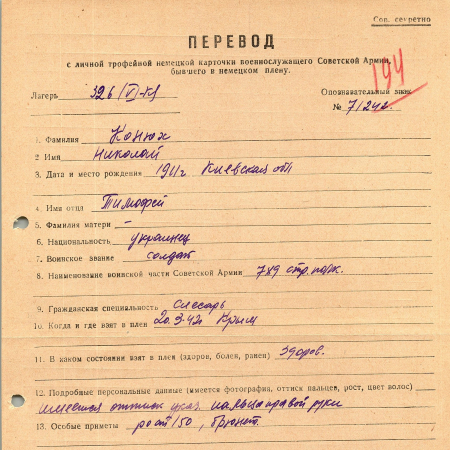 Сов. секретно
ПЕРЕВОД
с личной трофейной немецкой карточки военнослужащего Советской Армии,
бывшего в немецком плену.
194
Лагерь 326 (VI)-К
Опознавательный знак
№ 71242
1. Фамилия Конюх
2 Имя Николай
3. Дата и место рождения 1911г. Киевская обл
4. Имя отца Тимофей
5. Фамилия матери –
6. Национальность украинец
7. Воинское звание солдат
8. Наименование воинской части Советской Армии 789 стр. полк.
9. Гражданская специальность слесарь
10. Когда и где взят в плен 20.3.42г Крым
11. В каком состоянии взят в плен (здоров, болен, ранен) здоров.
12. Подробные персональные данные (имеется фотография, оттиск пальцев, рост, цвет волос)
имеется оттиск указ. пальца правой руки
13. Особые приметы рост 150, брюнет.